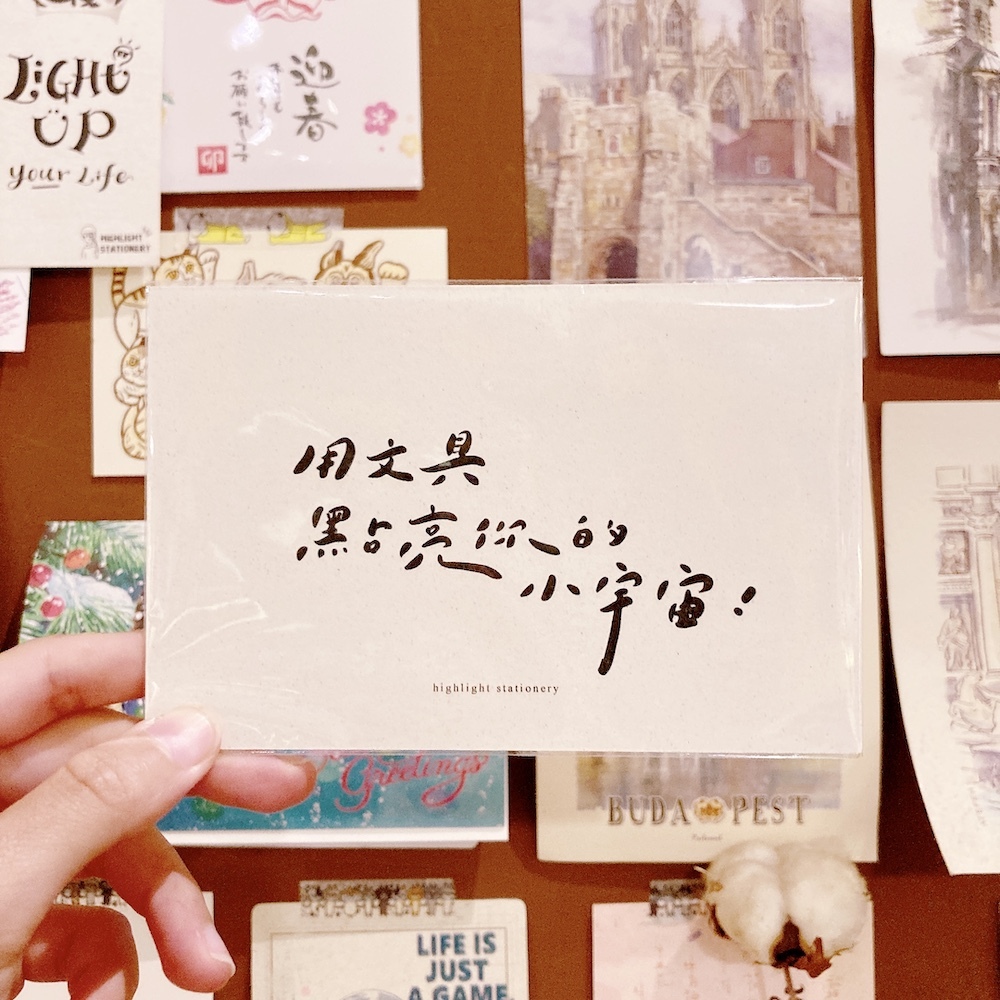 LiGHT
UP
your Life
HIGHLIGHT
STATIONERY
迎春
用文具
點亮你的
小宇宙!
highlight stationery
Greetings
BUDAPEST
LIFE IS
JUST
A GAME